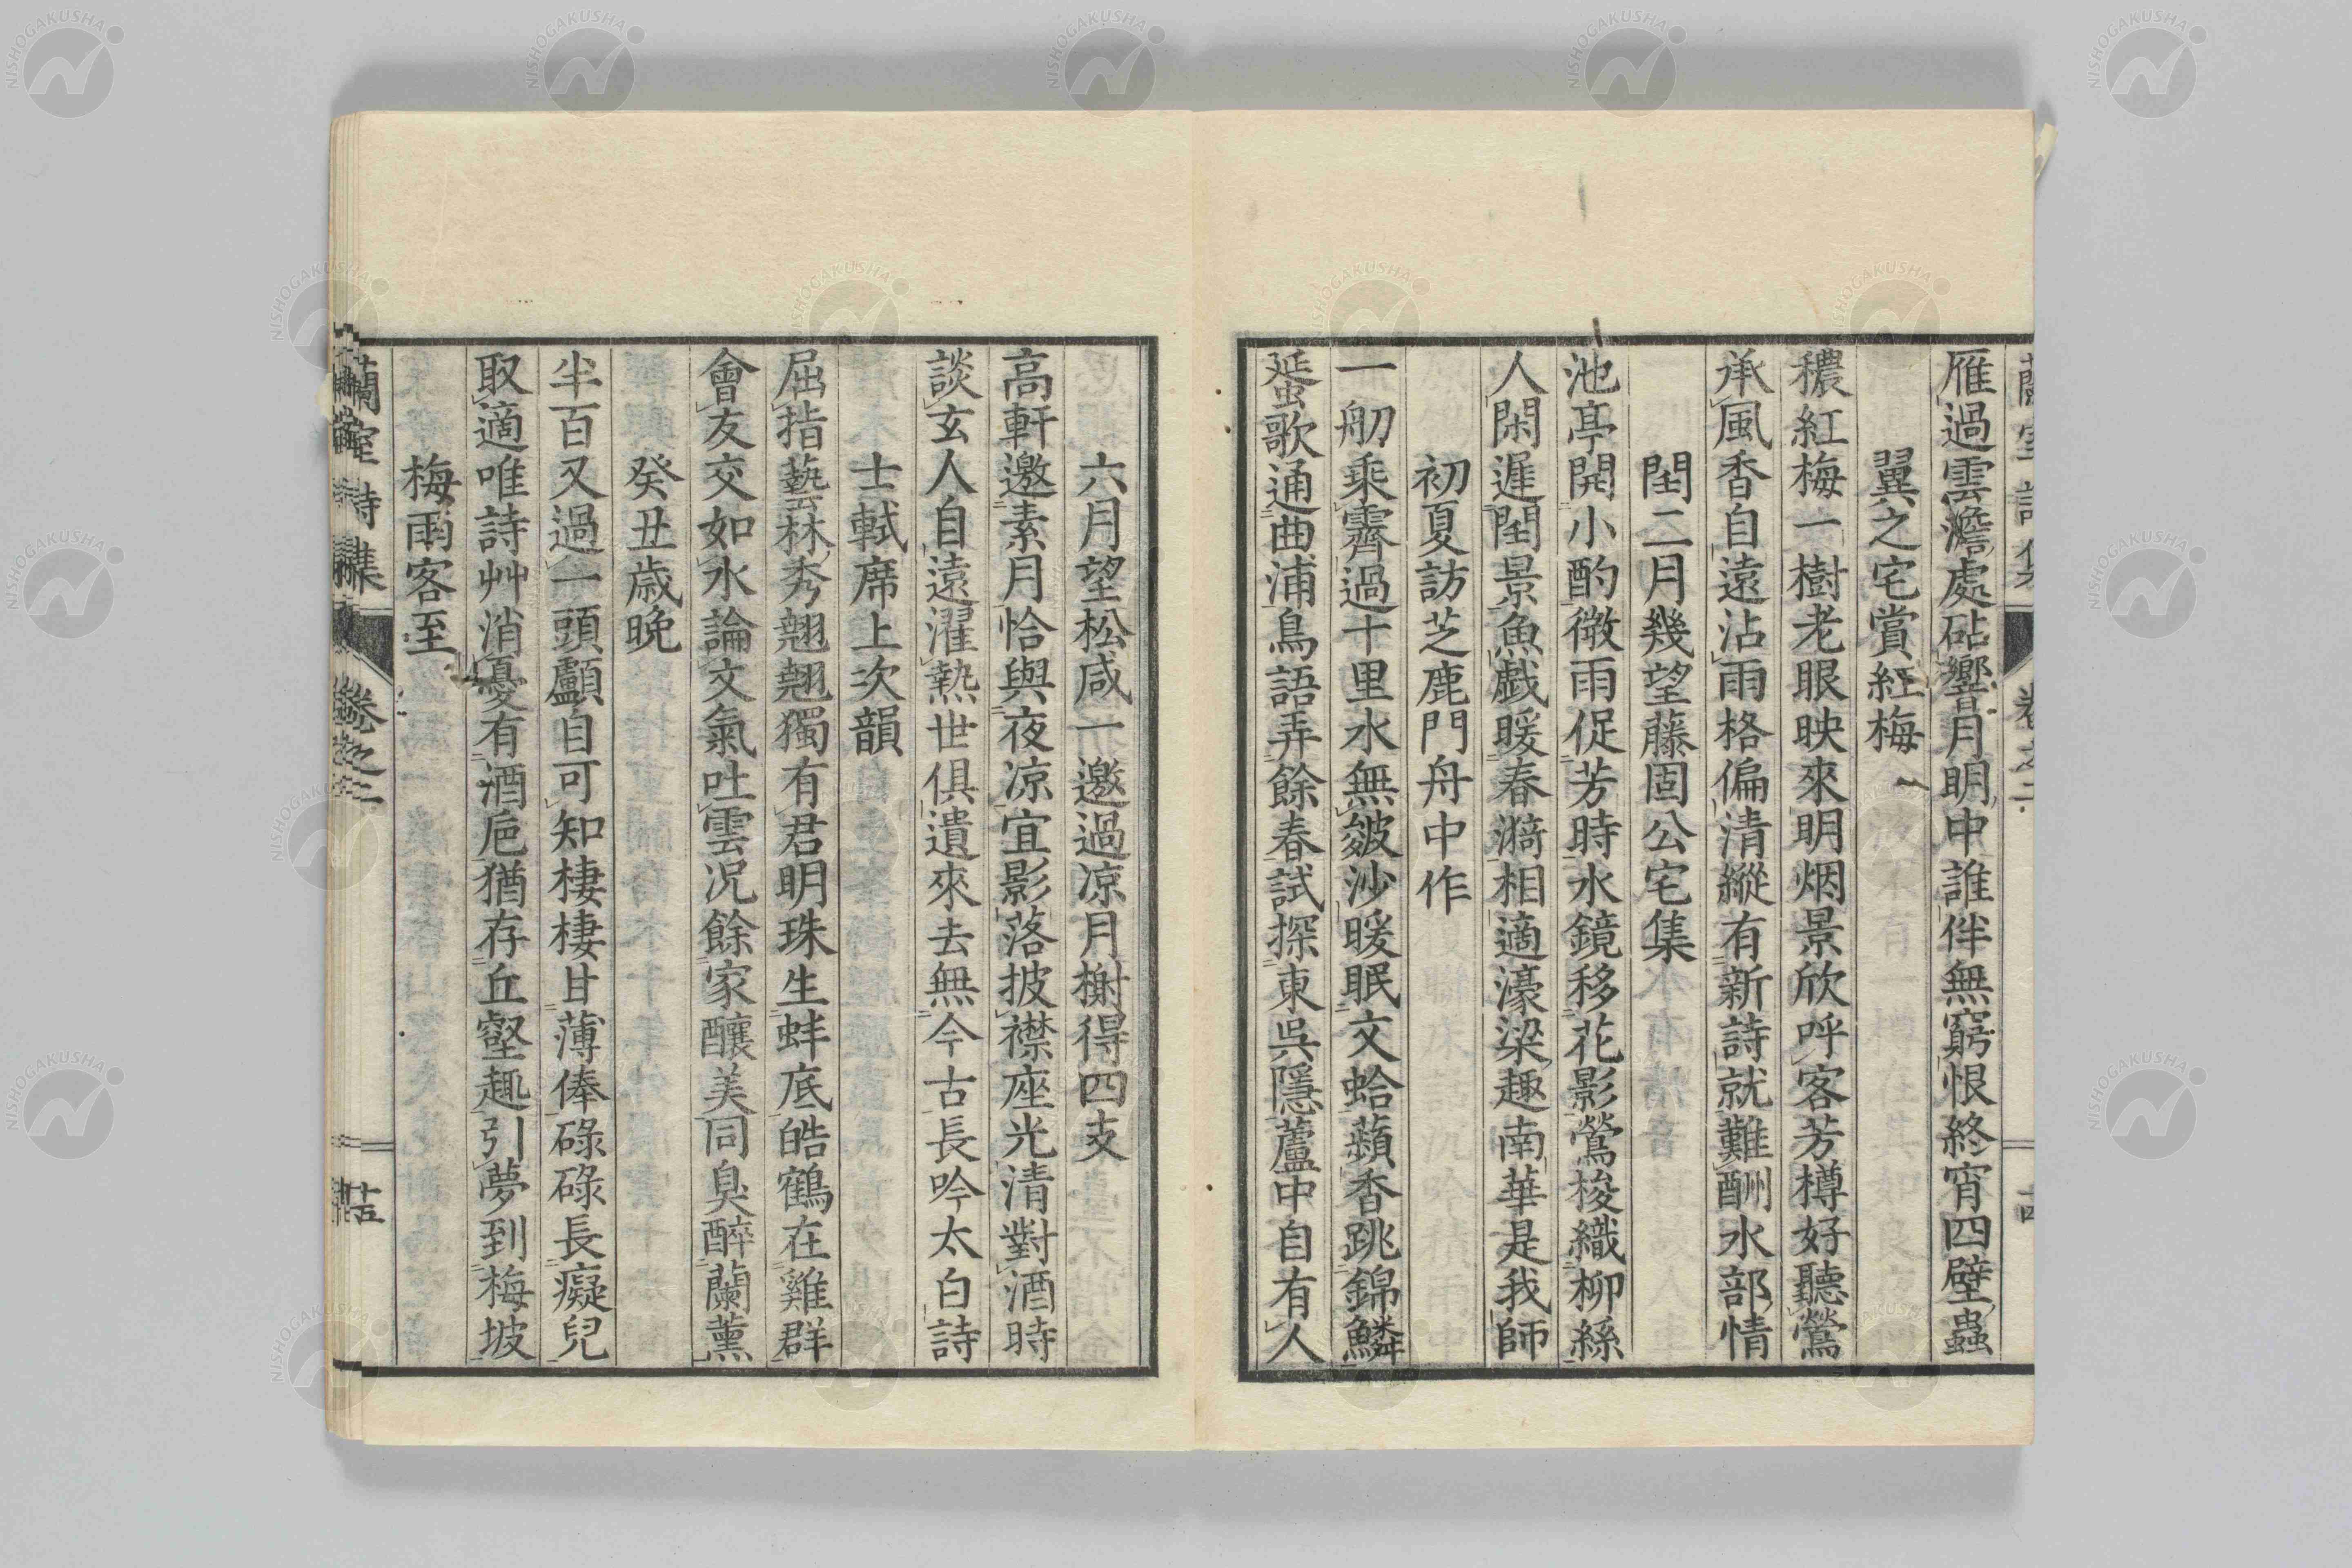 雁過雲澹處砧響月明中誰伴無窮恨終宵四壁蟲
翼之宅賞紅梅
穠紅梅一樹老眼映來明烟景欣呼客芳樽好聽鶯
承風香自遠沾雨格偏清縱有新詩就難酬水部情
閏二月幾望藤固公宅集
池亭開小酌微雨促芳時水鏡移花影鶯梭織柳絲
人閑遲閏景魚戲暖春漪相適濠梁趣南華是我師
初夏訪芝鹿門舟中作
一舠乘霽過十里水無皴沙暖眠文蛤蘋香跳錦鱗
蜑歌通曲浦鳥語弄餘春試探東吳隱蘆中自有人
六月望松咸一邀過凉月榭得四支
高軒邀素月恰與夜凉宜影落披襟座光清對酒時
談玄人自遠濯熱世俱遺來去無今古長吟太白詩
士軾席上次韻
屈指藝林秀翹翹獨有君明珠生蚌底皓鶴在雞群
會友交如水論文氣吐雲況餘家釀美同臭醉蘭薰
癸丑歲晚
半百又過一頭顱自可知棲棲甘薄俸碌碌長癡兒
取適唯詩艸消憂有酒巵猶存丘壑趣引夢到梅坡
梅雨客至
蘭室詩集 卷之二 十五
NISHOGAKUSHA